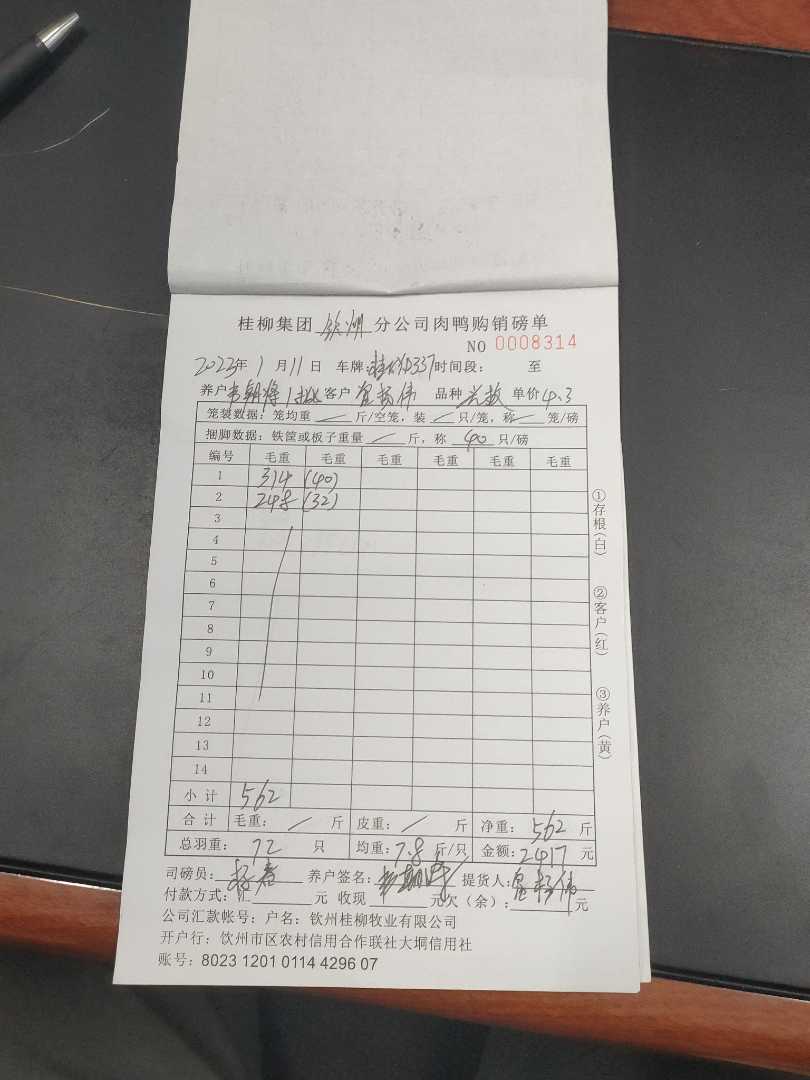 桂柳集团 钦州 分公司肉鸭购销磅单
NO 0008314
2023年 1 月 11 日 车牌: 时间段: 至
养户 客户 品种 单价 4.3
笼装数据: 笼均重 斤/空笼, 装 只/笼, 称 笼/磅
捆脚数据: 铁筐或板子重量 斤, 称 40 只/磅
编号 毛重 毛重 毛重 毛重 毛重 毛重
1 314 (40)
2 248 (32)
3
4
5
6
7
8
9
10
11
12
13
14
小 计 562
合 计 毛重: 斤 皮重: 斤 净重: 562 斤
总羽重: 72 只 均重: 7.8 斤/只 金额: 2417 元
司磅员: 养户签名: 提货人:
付款方式: 汇 元 收现 元欠(余): 元
公司汇款帐号: 户名: 钦州桂柳牧业有限公司
开户行: 钦州市区农村信用合作联社大垌信用社
账号: 8023 1201 0114 4296 07
①存根(白)
②客户(红)
③养户(黄)